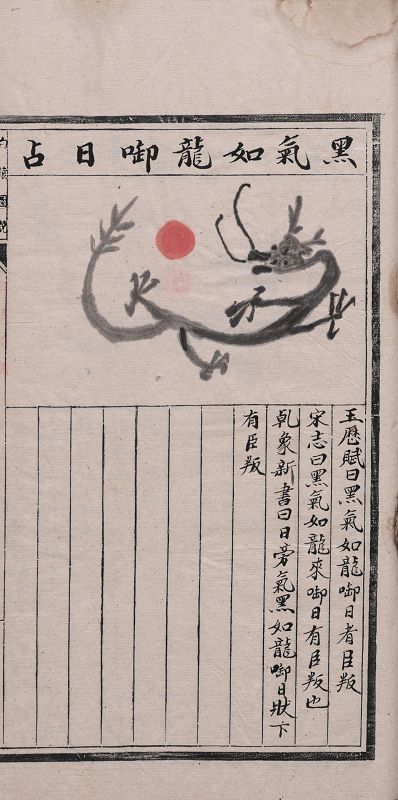 黑氣如龍啣日占
玉歷賦曰黑氣如龍啣日者臣叛
宋志曰黑氣如龍來啣日有臣叛也
乹象新書曰日旁氣黑如龍啣日狀下
有臣叛